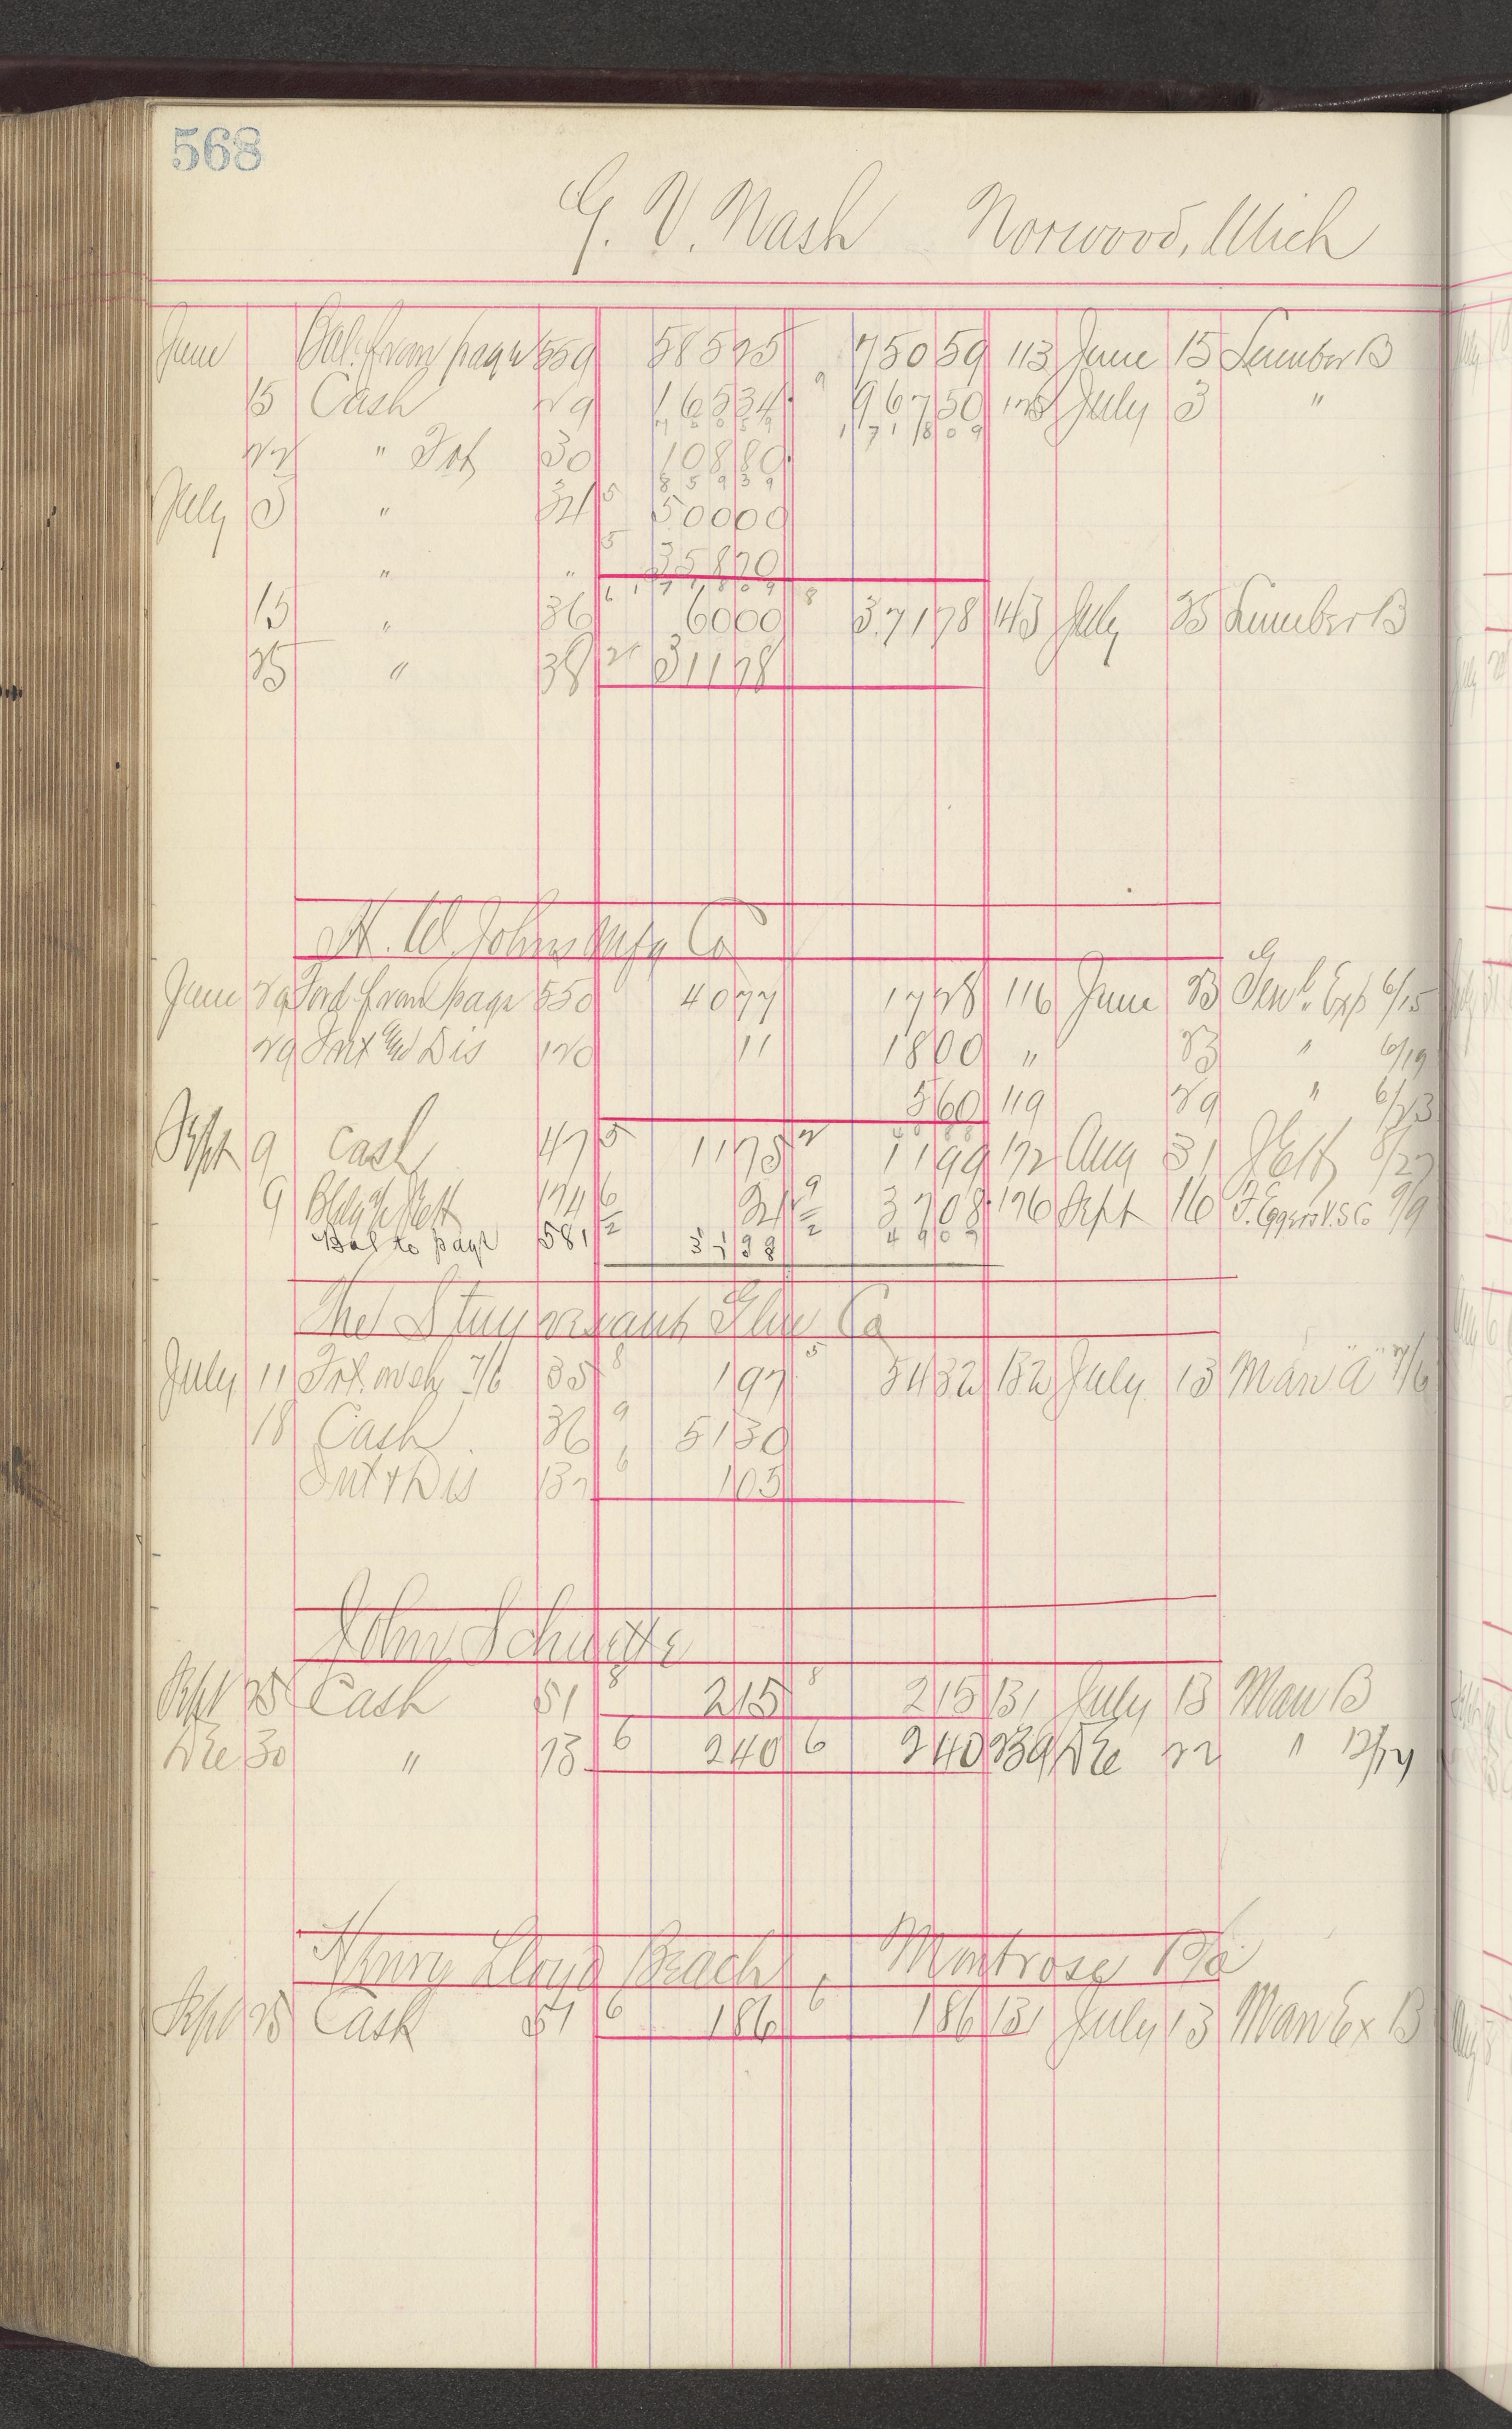 568
G. V. Nash Norwood, Mich
June Bal. from page 559 58525 75059 113 June 15 Lumber B
15 Cash 29 16534 96750 125 July 3 "
75059 171809
22 " Frt 30 10880
85939
July 3 " 34 50000
" " 35870
171809
15 " 36 6000 37178 143 July 25 Lumber B
25 " 38 31178
H. W. Johns Mfg Co
June 29 Ford from page 550 4077 1728 116 June 23 Genl. Exp 6/15
29 Int and Dis 120 11 1800 " 23 " 6/19
560 119 29 " 6/23
Sept 9 Cash 47 1175 1199 172 Aug 31
9 174 24 3708 176 Sept 16 9/9
Bal to page 581 3798 4907
The Stuyvesant Glue Co
July 11 Frt. on 7/6 35 197 5432 132 July 13 Man "A" 7/6
18 Cash 36 5130
Int & Dis 132 105
John Schuette
Sept 25 Cash 51 215 215 131 July 13 Man B
Dec 30 " 73 240 240 239 Dec 22 " 12/14
Henry Lloyd Beach, Montrose Pa
Sept 25 Cash 51 186 186 131 July 13 Man Ex B